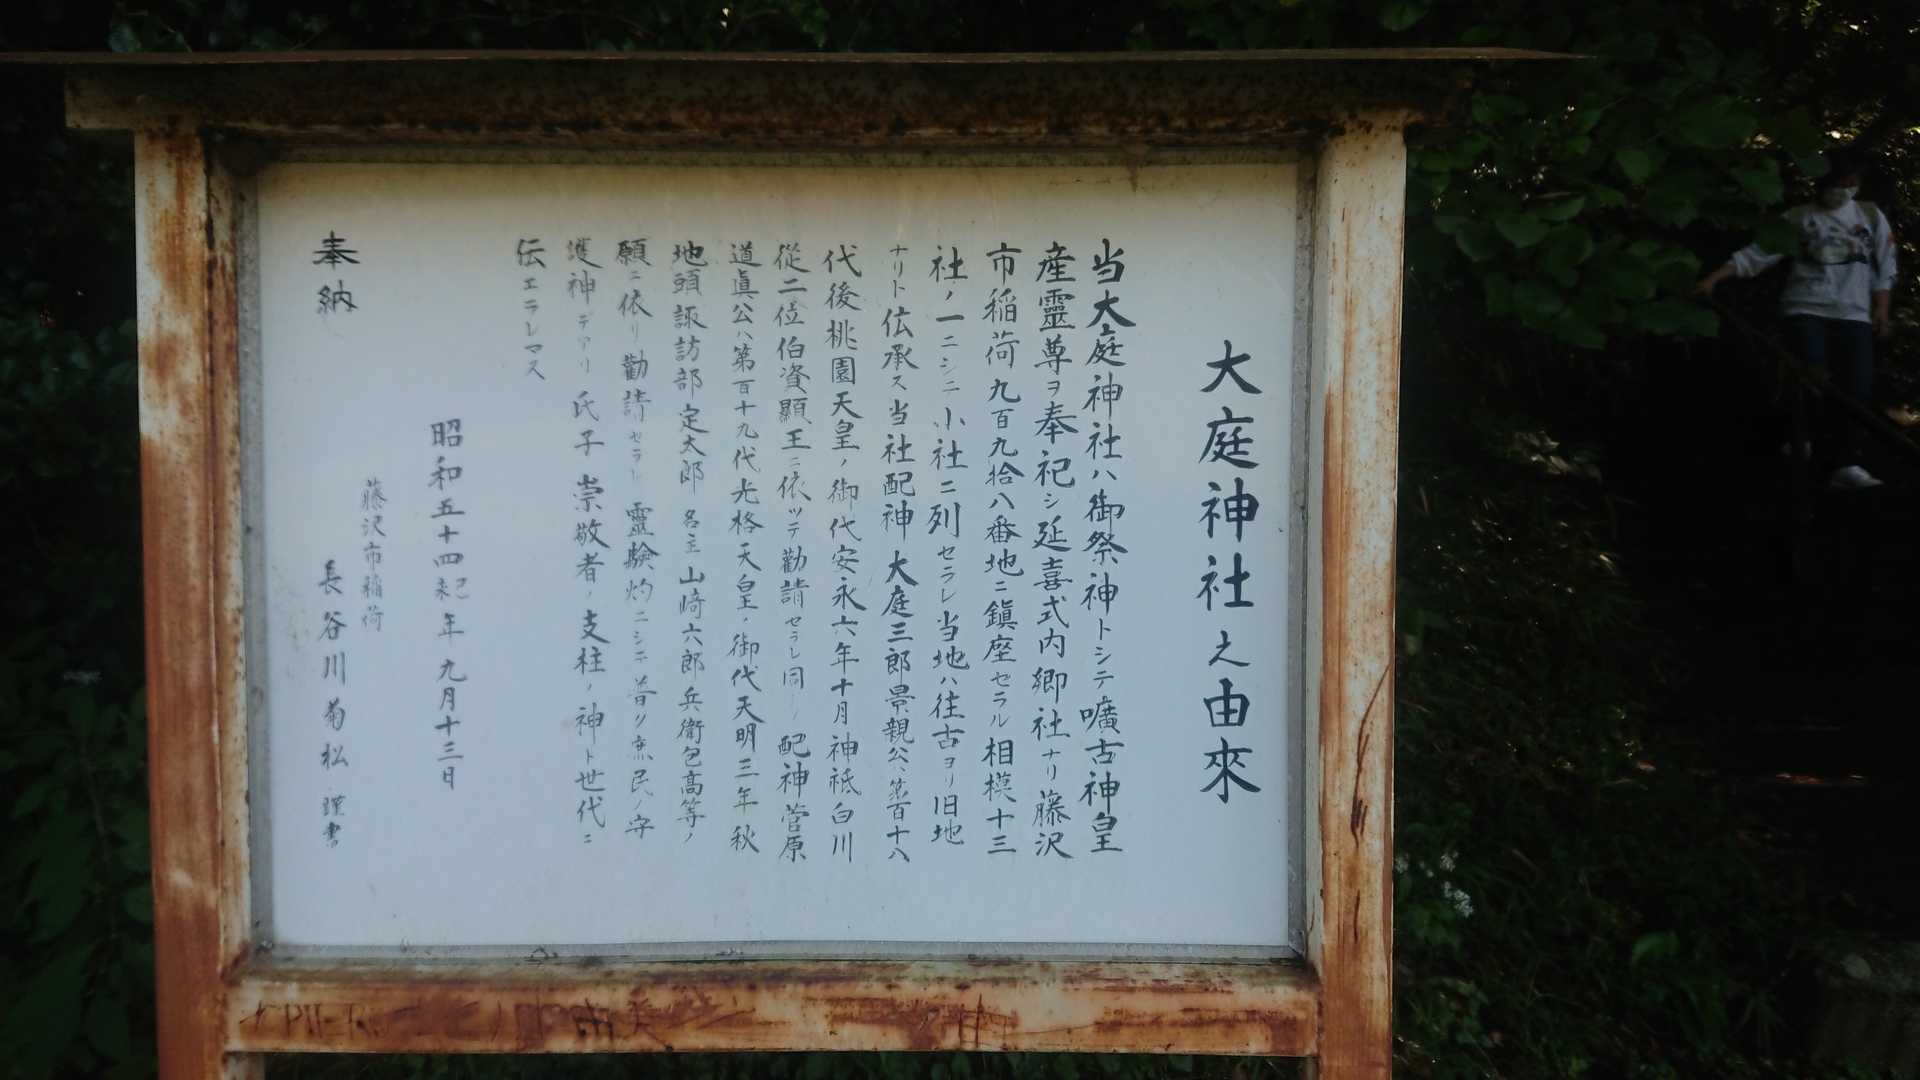 大庭神社之由來
当大庭神社ハ御祭神トシテ嚝古神皇
産靈尊ヲ奉祀シ延喜式内郷社ナリ藤沢
市稲荷九百九拾八番地ニ鎮座セラル相模十三
社ノ一ニシテ小社ニ列セラレ当地ハ往古ヨリ旧地
ナリト伝承ス当社配神大庭三郎景親公ハ第百十八
代後桃園天皇ノ御代安永六年十月神祗白川
従二位伯資顯王ニ依ツテ勸請セラレ同ノ配神菅原
道眞公ハ第百十九代光格天皇ノ御代天明三年秋
地頭諏訪部定太郎名主山崎六郎兵衛包高等ノ
願ニ依リ勸請セラレ靈驗灼ニシテ普ク庶民ノ守
護神デアリ氏子崇敬者ノ支柱ノ神ト世代ニ
伝エラレマス
昭和五十四年九月十三日
藤沢市稲荷
奉納 長谷川菊松 謹書